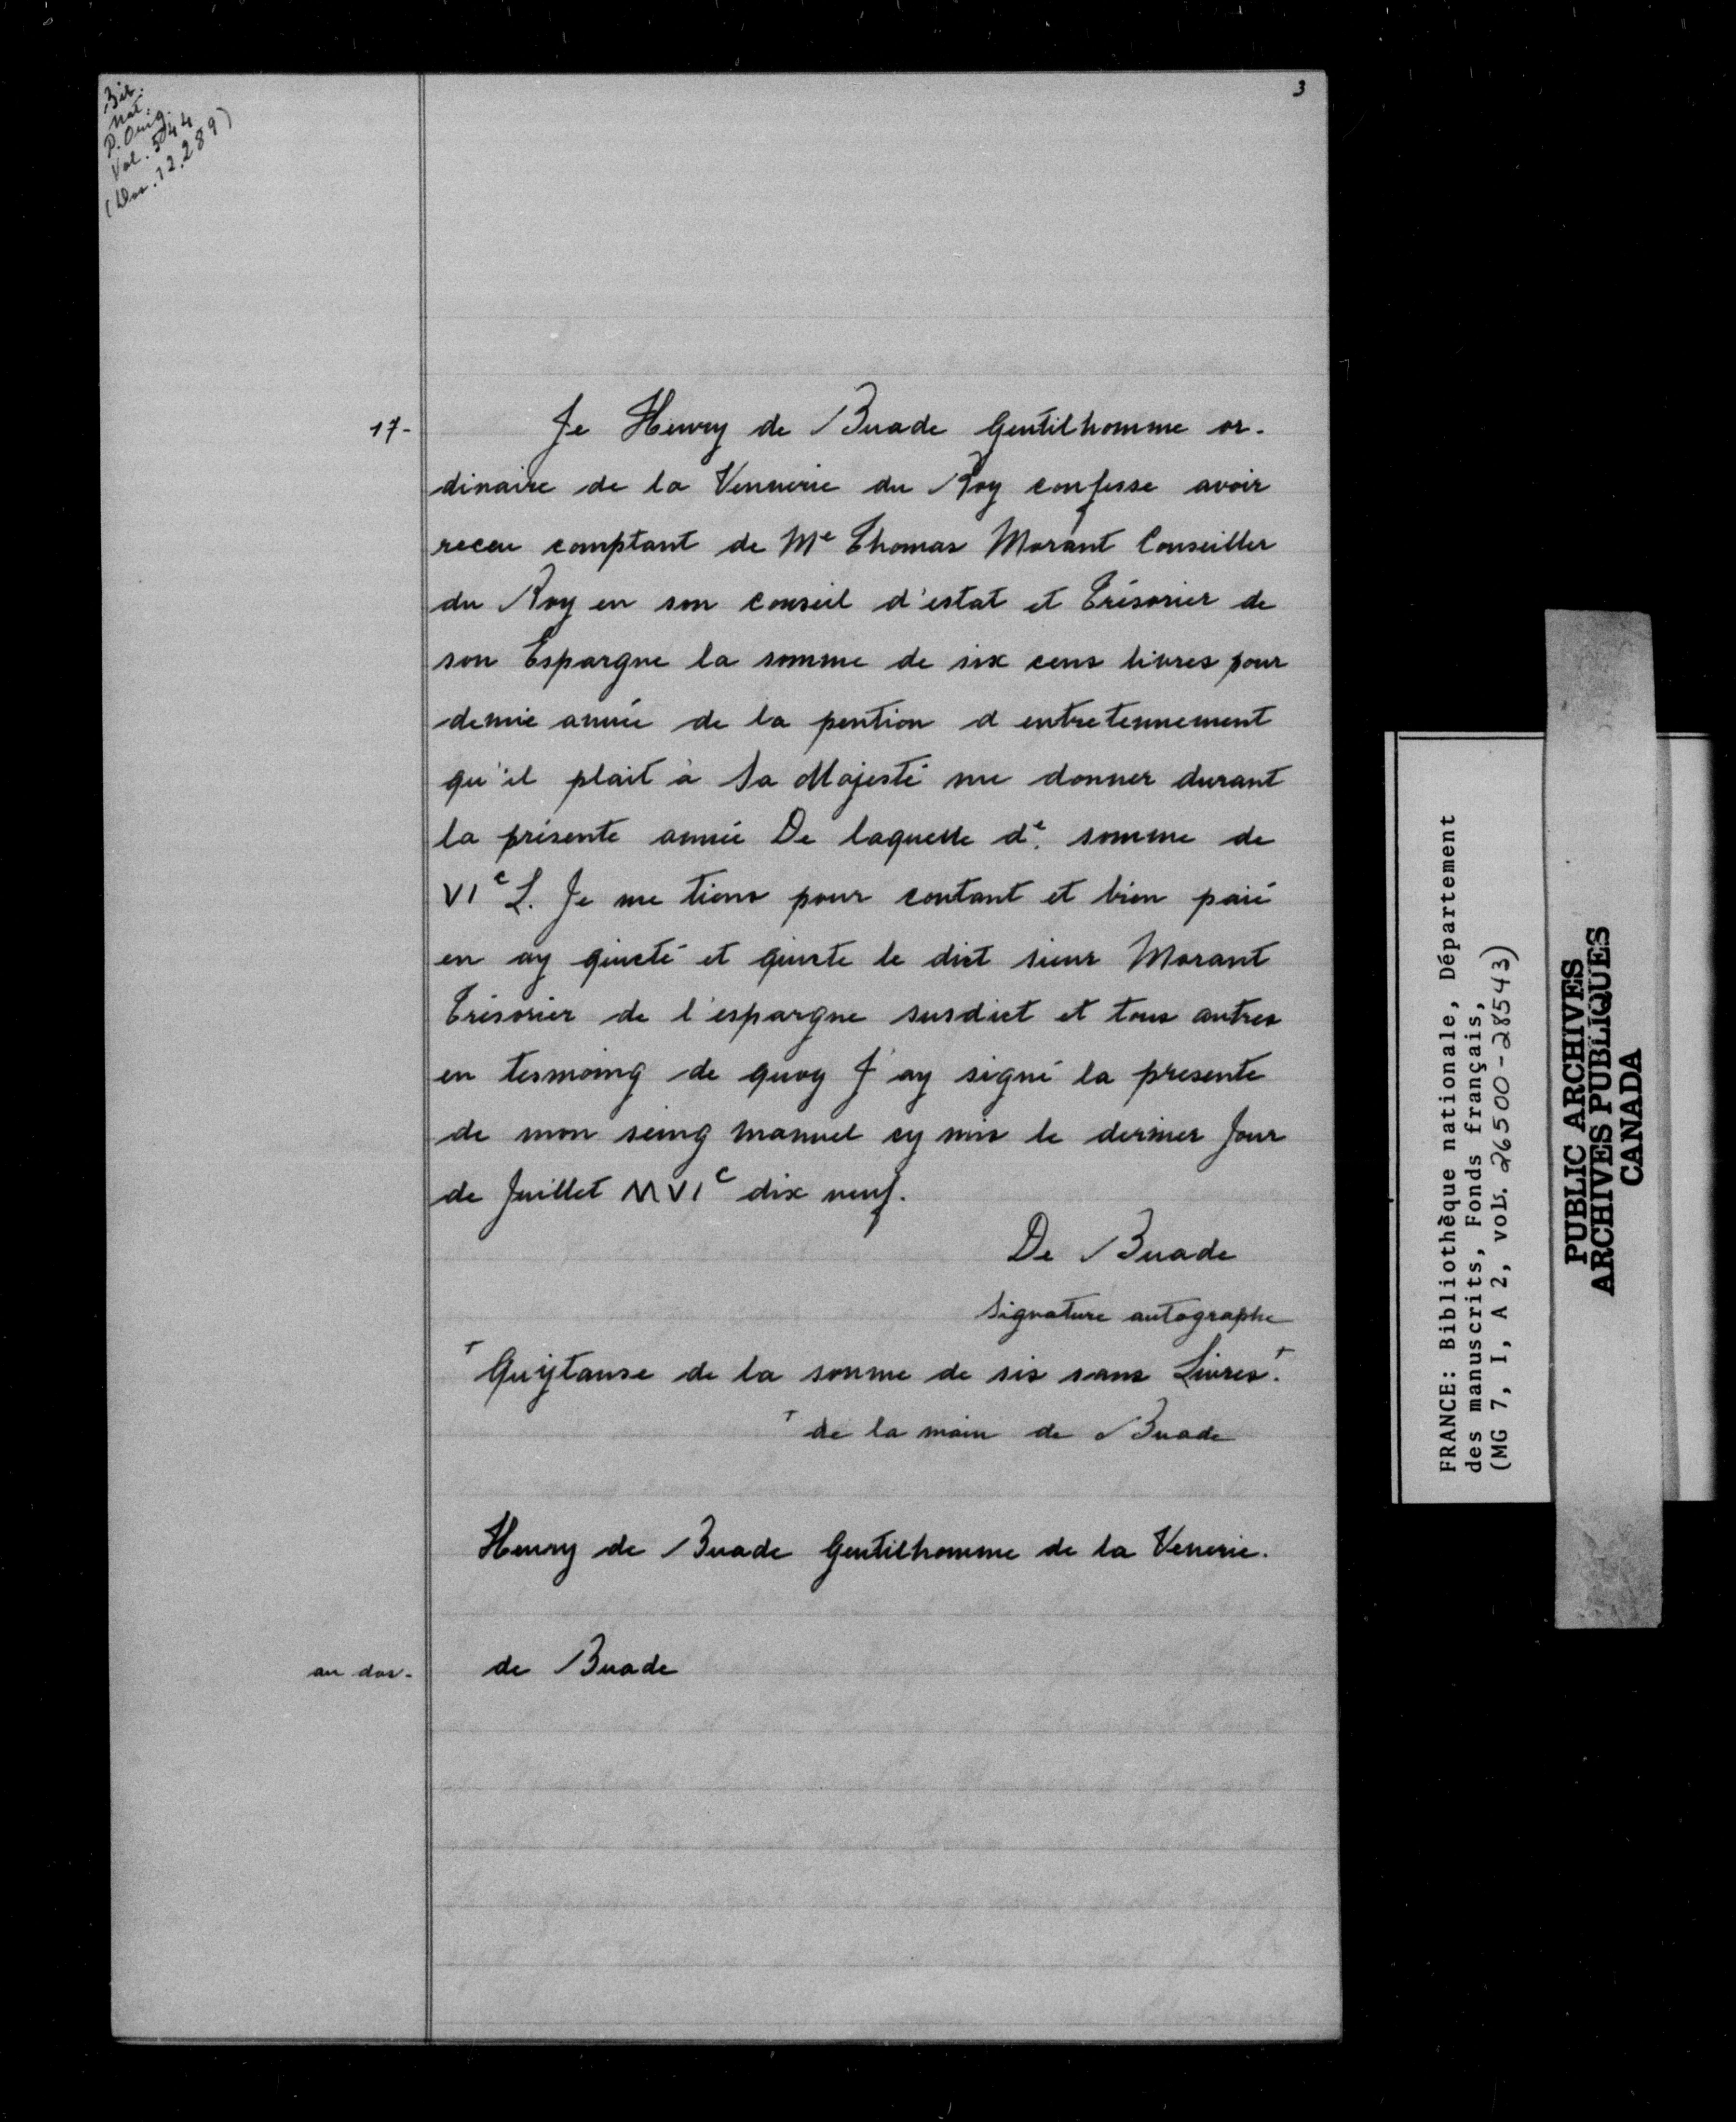 3
Bib.
Nat.
P. Orig.
Vol. 544
(Dos. 12.289)
17-
Je Henry de Buade Gentilhomme or-
dinaire de la Vennerie du Roy confesse avoir
receu comptant de Me Thomas Morant Conseiller
du Roy en son conseil d'estat et Trésorier de
son Espargne la somme de six cens livres pour
demie année de la pention d entretennement
qu'il plait à Sa Majesté me donner durant
la présente année De laquelle de. somme de
VIc L. Je me tiens pour contant et bien paié
en ay quicté et quicte le dict sieur Morant
Trésorier de l'espargne susdict et tous autres
en tesmoing de quoy J'ay signé la presente
de mon seing manuel cy mis le dernier Jour
de Juillet MVIc dix neuf.
De Buade
Signature autographe
+ Quijtanse de la somme de sis sans Livres. +
+ de la main de Buade
Henry de Buade Gentilhomme de la Venerie.
au dos-
de Buade
FRANCE: Bibliothèque nationale, Département
des manuscrits, Fonds français,
(MG 7, I, A 2, vols. 26500-28543)
PUBLIC ARCHIVES
ARCHIVES PUBLIQUES
CANADA